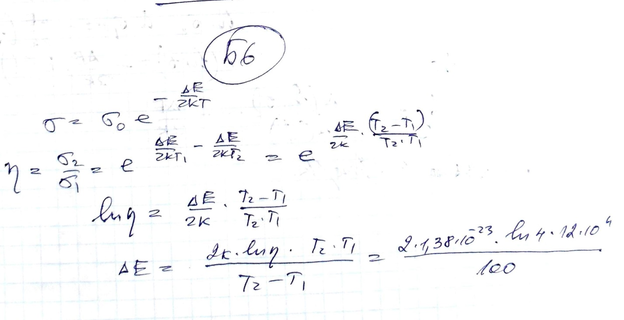 Б6
σ = σ₀ e^(-ΔE/2kT)
η = σ₂/σ₁ = e^(ΔE/2kT₁ - ΔE/2kT₂) = e^(ΔE/2k · (T₂-T₁)/T₂·T₁)
lnη = ΔE/2k · T₂-T₁/T₂·T₁
ΔE = 2k·lnη·T₂·T₁/T₂-T₁ = 2·1,38·10⁻²³·ln4·12·10⁴/100